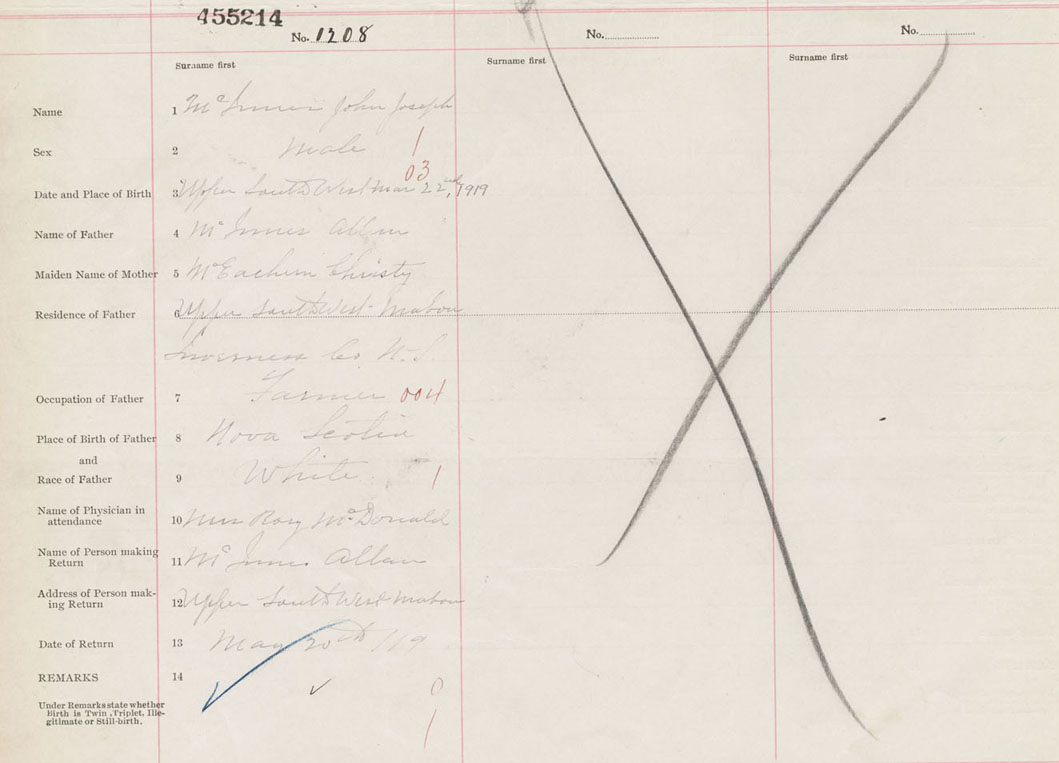 455214
No. 1208
No.
No.
Surname first
Surname first
Surname first
Name 1 McInnis John Joseph
Sex 2 Male 1
03
Date and Place of Birth 3 Upper South West Mar 22nd, 1919
Name of Father 4 McInnis Allan
Maiden Name of Mother 5 McEachern Christy
Residence of Father 6 Upper South West Mabou
Inverness Co. N.S.
Occupation of Father 7 Farmer 004
Place of Birth of Father 8 Nova Scotia
and
Race of Father 9 White 1
Name of Physician in
attendance 10 Mrs Rory McDonald
Name of Person making
Return 11 McInnis Allan
Address of Person mak-
ing Return 12 Upper South West Mabou
Date of Return 13 May 20th /19
REMARKS 14
Under Remarks state whether
Birth is Twin, Triplet, Ille-
gitimate or Still-birth.
0
1